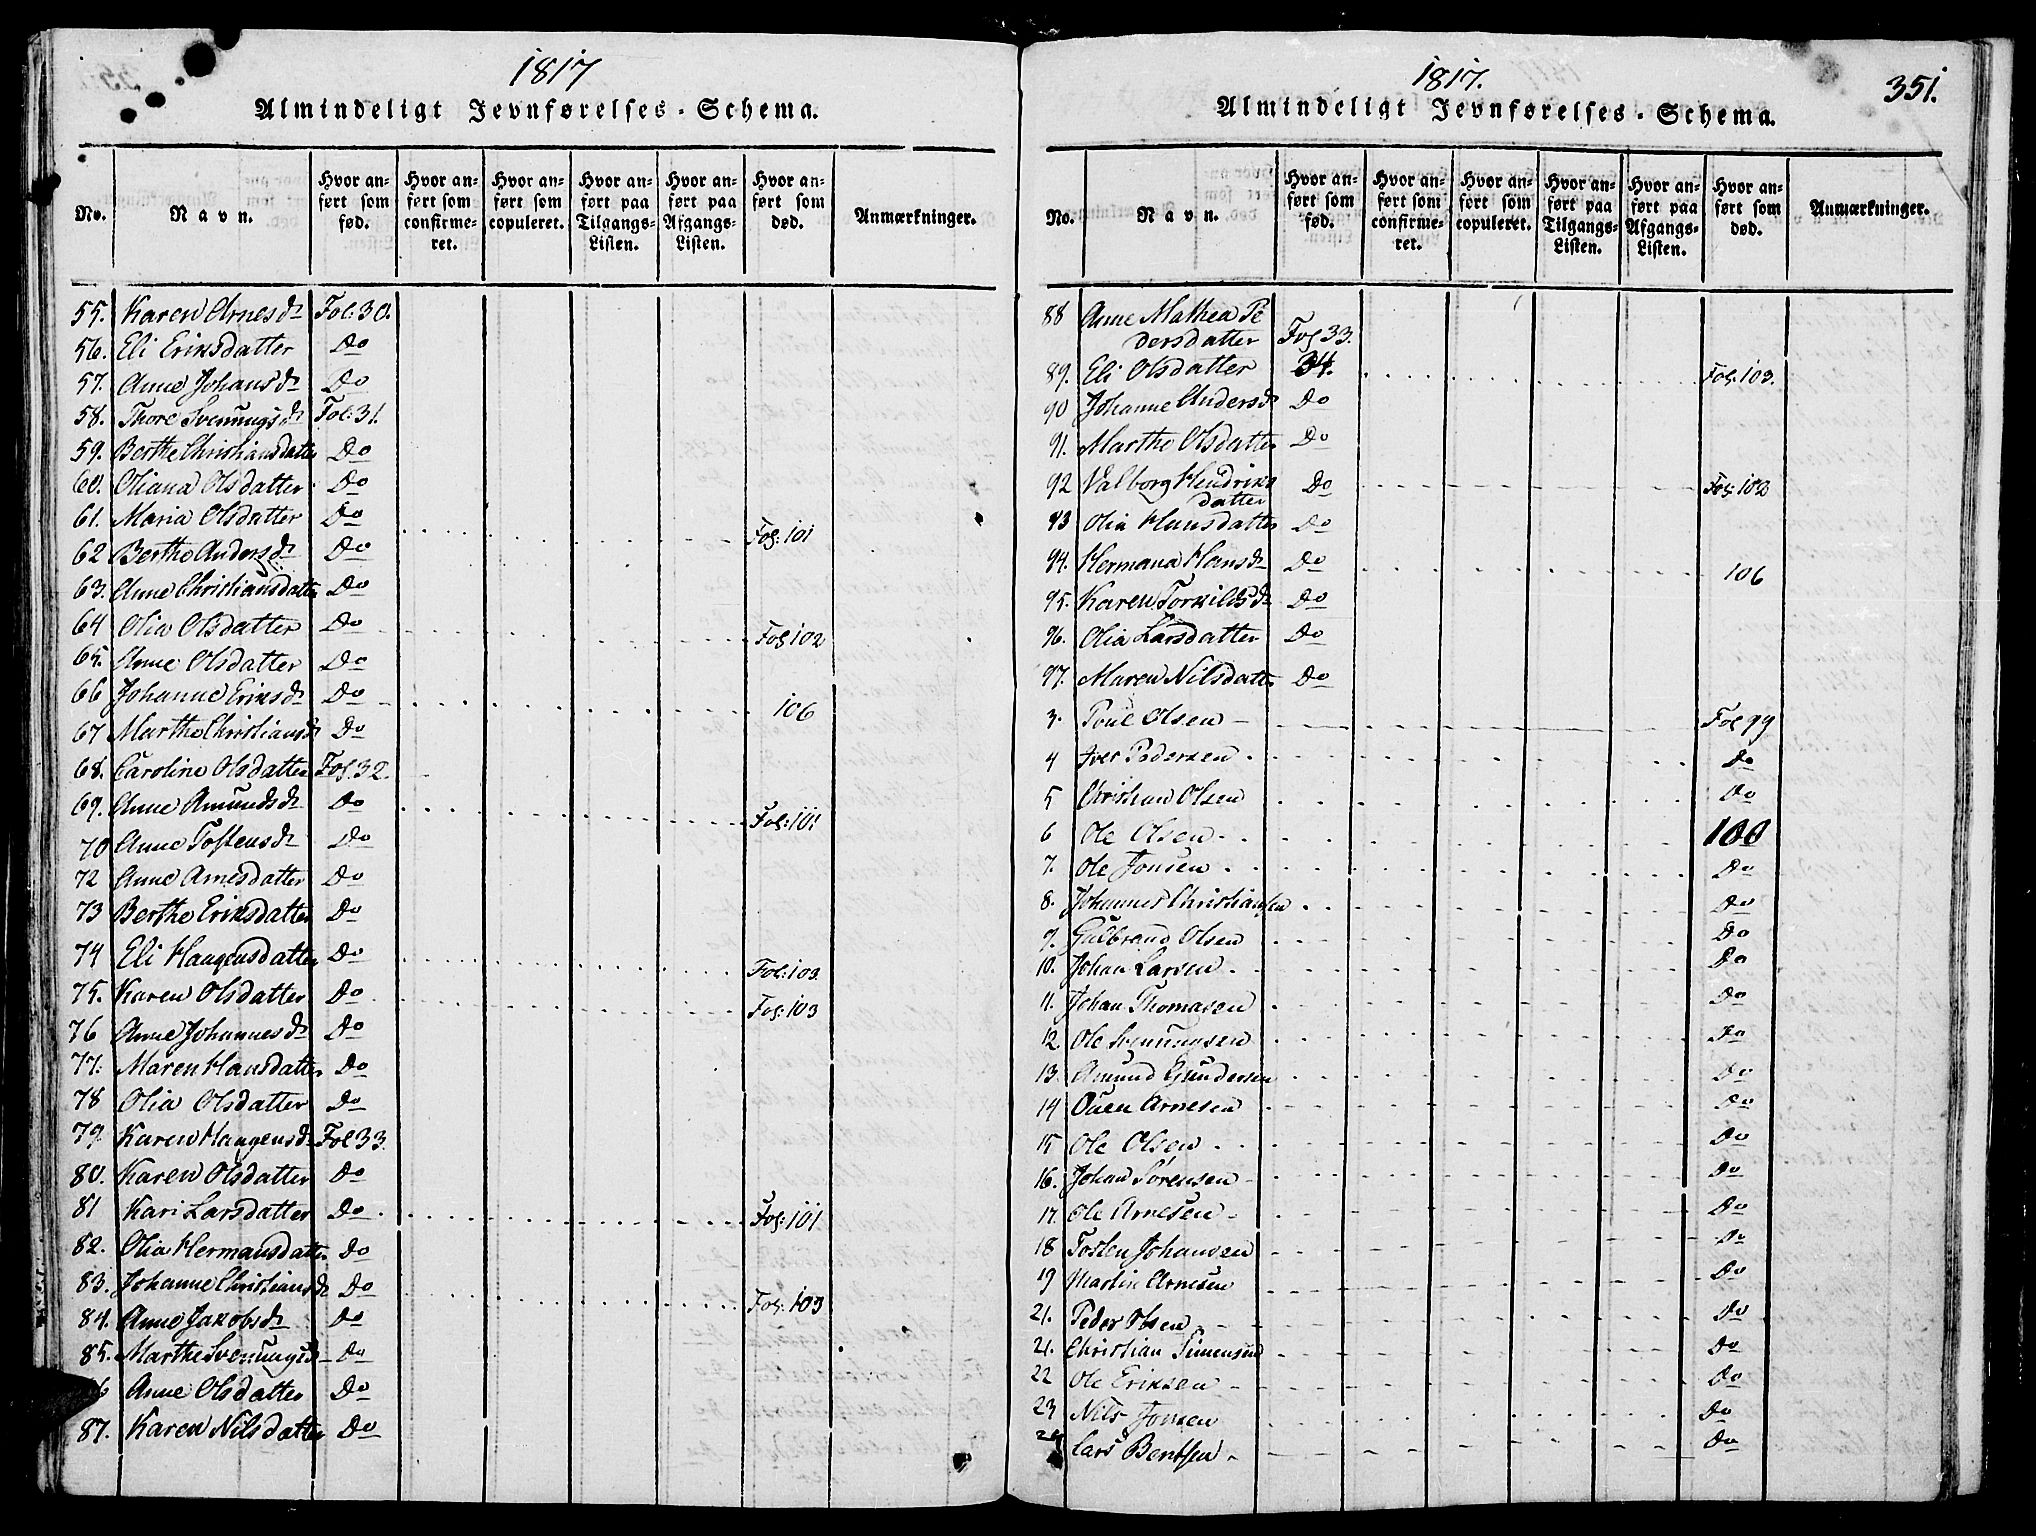 1817
Almindeligt Jevnførelses-Schema.
No.
Navn.
Hvor anført som fød.
Hvor anført som confirmeret.
Hvor anført som copuleret.
Hvor anført paa Tilgangs-Listen.
Hvor anført paa Afgangs-Listen.
Hvor anført som død.
Anmærkninger.
55. Karen Arnesdr Fol: 30.
56. Eli Eriksdatter Do
57. Anne Johansdr Do
58. Thore Svenungsdr Fol: 31.
59. Berthe Christiansdatter Do
60. Oliana Olsdatter Do
61. Maria Olsdatter Do Fol: 101
62 Berthe Andersdr Do
63. Anne Christiansdatter Do
64 Olia Olsdatter Do Fol 102
65. Anne Olsdatter Do
66 Johanne Eriksdr Do 106
67 Marthe Christiansdr Do
68. Caroline Olsdatter Fol. 32.
69. Anne Amundsdr Do Fol: 101
70 Anne Tostensdr Do
72 Anne Arnesdatter Do
73 Berthe Eriksdatter Do
74 Eli Haagensdatter Do Fol: 103
75. Karen Olsdatter Do Fol: 103
76 Anne Johannesdr Do
77. Maren Hansdatter Do
78 Olia Olsdatter Do
79. Karen Haagensdr Fol 33.
80. Karen Olsdatter Do
81 Kari Larsdatter Do Fol: 101
82. Olia Hermansdatter Do
83. Johanne Christiansdr Do Fol: 103
84. Anne Jakobsdr Do
85. Marthe Svenungsd Do
6 Anne Olsdatter Do
87. Karen Nilsdatter Do
1817.
351.
Almindeligt Jevnførelses-Schema.
No.
Navn.
Hvor anført som fød.
Hvor anført som confirmeret.
Hvor anført som copuleret.
Hvor anført paa Tilgangs-Listen.
Hvor anført paa Afgangs-Listen.
Hvor anført som død.
Anmærkninger.
88 Anne Mathea Pe
dersdatter Fol 33.
89. Eli Olsdatter 34. Fol. 103.
90 Johanne Andersd Do
91. Marthe Olsdatter Do
92 Valborg Hendriks
datter Do Fol: 102
93 Olia Hansdatter Do
94. Hermana Hansdr Do 106
95. Karen Torkildsdr Do
96. Olia Larsdatter Do
97. Maren Nilsdatter Do
3. Poul Olsen Fol 99
4 Iver Pedersen Do
5 Christian Olsen Do
6 Ole Olsen 100
7. Ole Jonsen Do
8. Johannes Christiansen Do
9. Gulbrand Olsen Do
10. Johan Larsen Do
11. Johan Thomasen Do
12. Ole Svenungsen Do
13. Amund Gundersen Do
14 Ouen Arnesen Do
15 Ole Olsen Do
16. Johan Sørensen Do
17. Ole Arnesen Do
18 Tosten Johansen Do
19 Martin Arnesen Do
21. Peder Olsen Do
21. Christian Simensen Do
22 Ole Eriksen Do
23 Nils Jonsen Do
24 Lars Bentsen Do